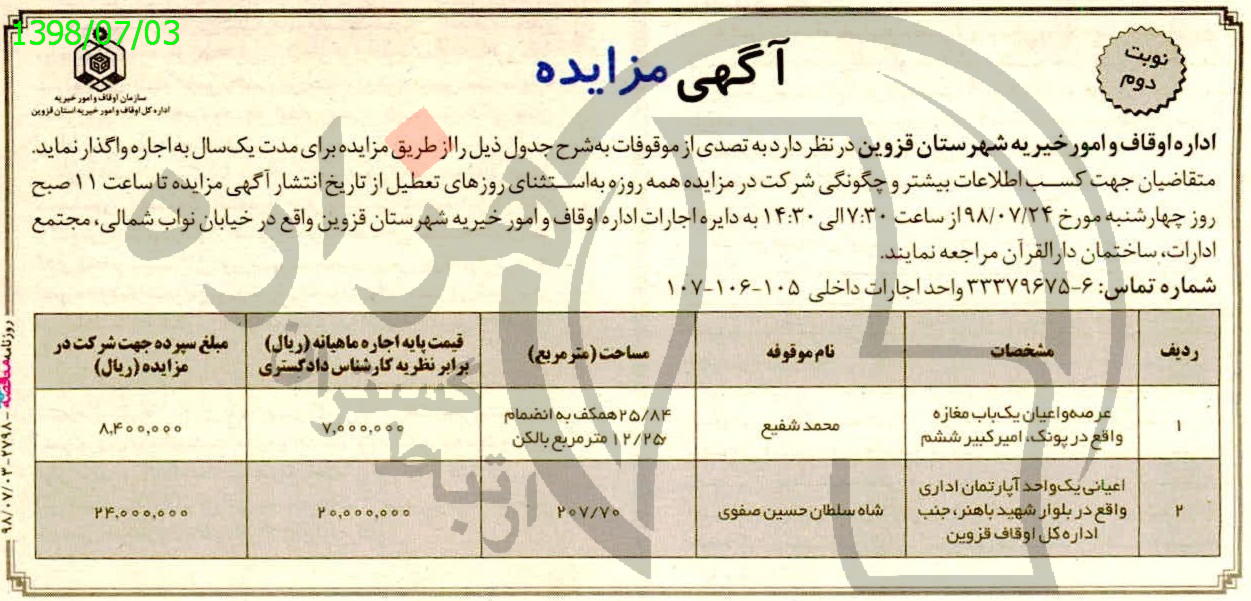 1398/07/03
نوبت
دوم
آگهی مزایده
سازمان اوقاف و امور خیریه
اداره کل اوقاف و امور خیریه استان قزوین
اداره اوقاف و امور خیریه شهرستان قزوین در نظر دارد به تصدی از موقوفات به‌شرح جدول ذیل را از طریق مزایده برای مدت یک‌سال به اجاره واگذار نماید.
متقاضیان جهت کسب اطلاعات بیشتر و چگونگی شرکت در مزایده همه روزه به‌استثنای روزهای تعطیل از تاریخ انتشار آگهی مزایده تا ساعت ۱۱ صبح
روز چهارشنبه مورخ ۹۸/۰۷/۲۴ از ساعت ۷:۳۰ الی ۱۴:۳۰ به دایره اجارات اداره اوقاف و امور خیریه شهرستان قزوین واقع در خیابان نواب شمالی، مجتمع
ادارات، ساختمان دارالقرآن مراجعه نمایند.
شماره تماس: ۶-۳۳۳۷۹۶۷۵ واحد اجارات داخلی ۱۰۵-۱۰۶-۱۰۷
ردیف
مشخصات
نام موقوفه
مساحت (متر مربع)
قیمت پایه اجاره ماهیانه (ریال)
برابر نظریه کارشناس دادگستری
مبلغ سپرده جهت شرکت در
مزایده (ریال)
۱
عرصه و اعیان یک‌باب مغازه
واقع در پونک، امیرکبیر ششم
محمد شفیع
۲۵/۸۴ همکف به انضمام
۱۲/۲۵ متر مربع بالکن
۷,۰۰۰,۰۰۰
۸,۴۰۰,۰۰۰
۲
اعیانی یک‌واحد آپارتمان اداری
واقع در بلوار شهید باهنر، جنب
اداره کل اوقاف قزوین
شاه سلطان حسین صفوی
۲۰۷/۷۰
۲۰,۰۰۰,۰۰۰
۲۴,۰۰۰,۰۰۰
روزنامه مناقصه - ۲۷۹۸ - ۹۸/۰۷/۰۳
هزاره
گستران
ارتباط